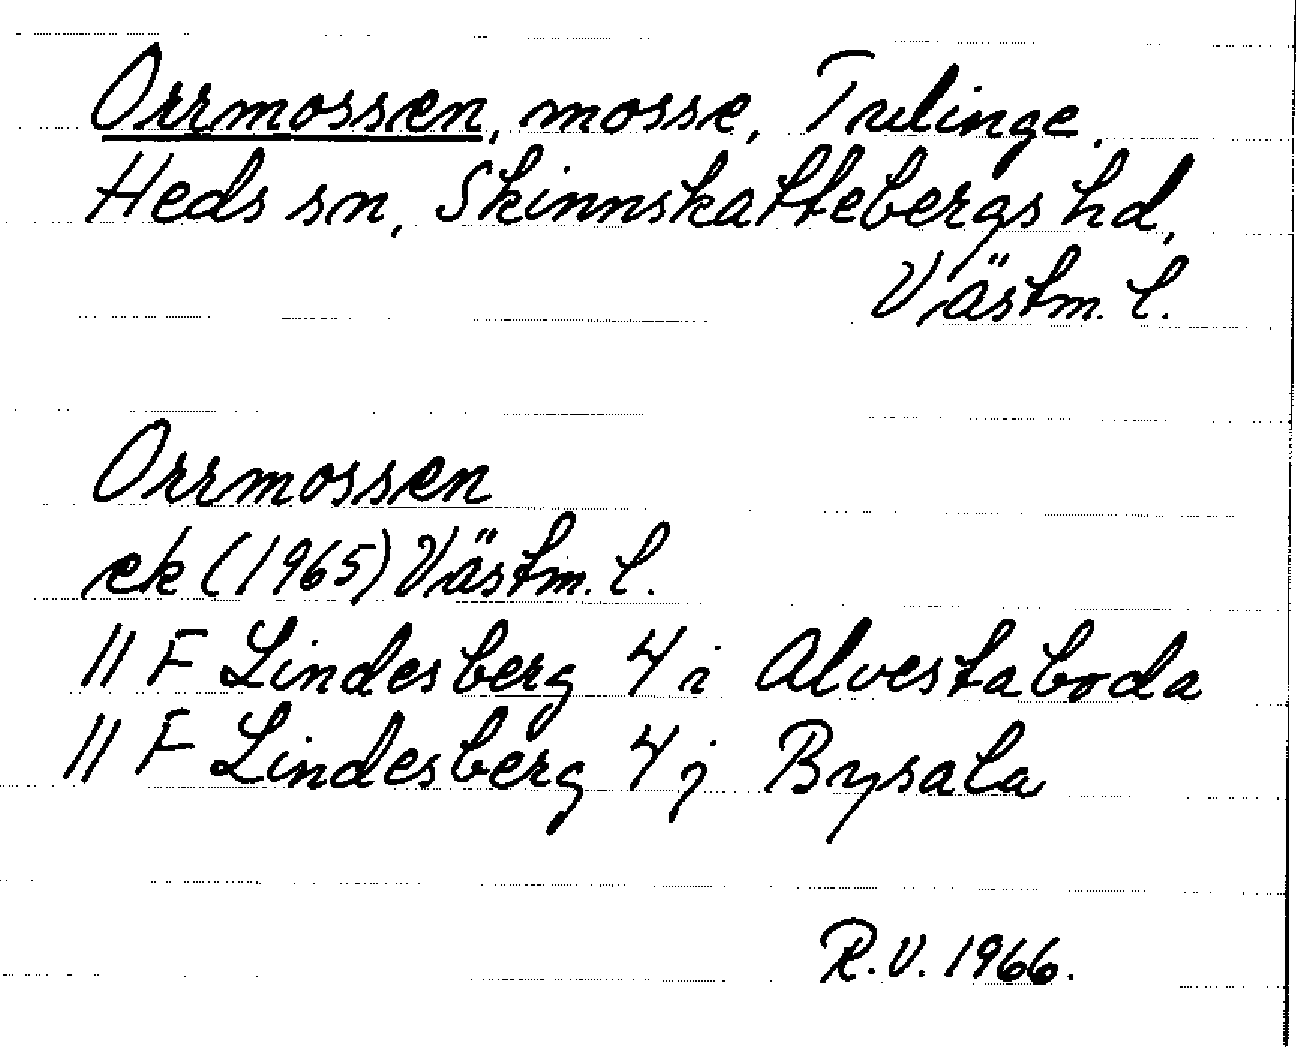 Orrmossen, mosse, Trulinge.
Heds sn, Skinnskattebergs hd,
Västm. l.
Orrmossen
ek (1965) Västm. l.
11 F Lindesberg 4 i Alvestaboda
11 F Lindesberg 4 j Bysala
R.V. 1966.